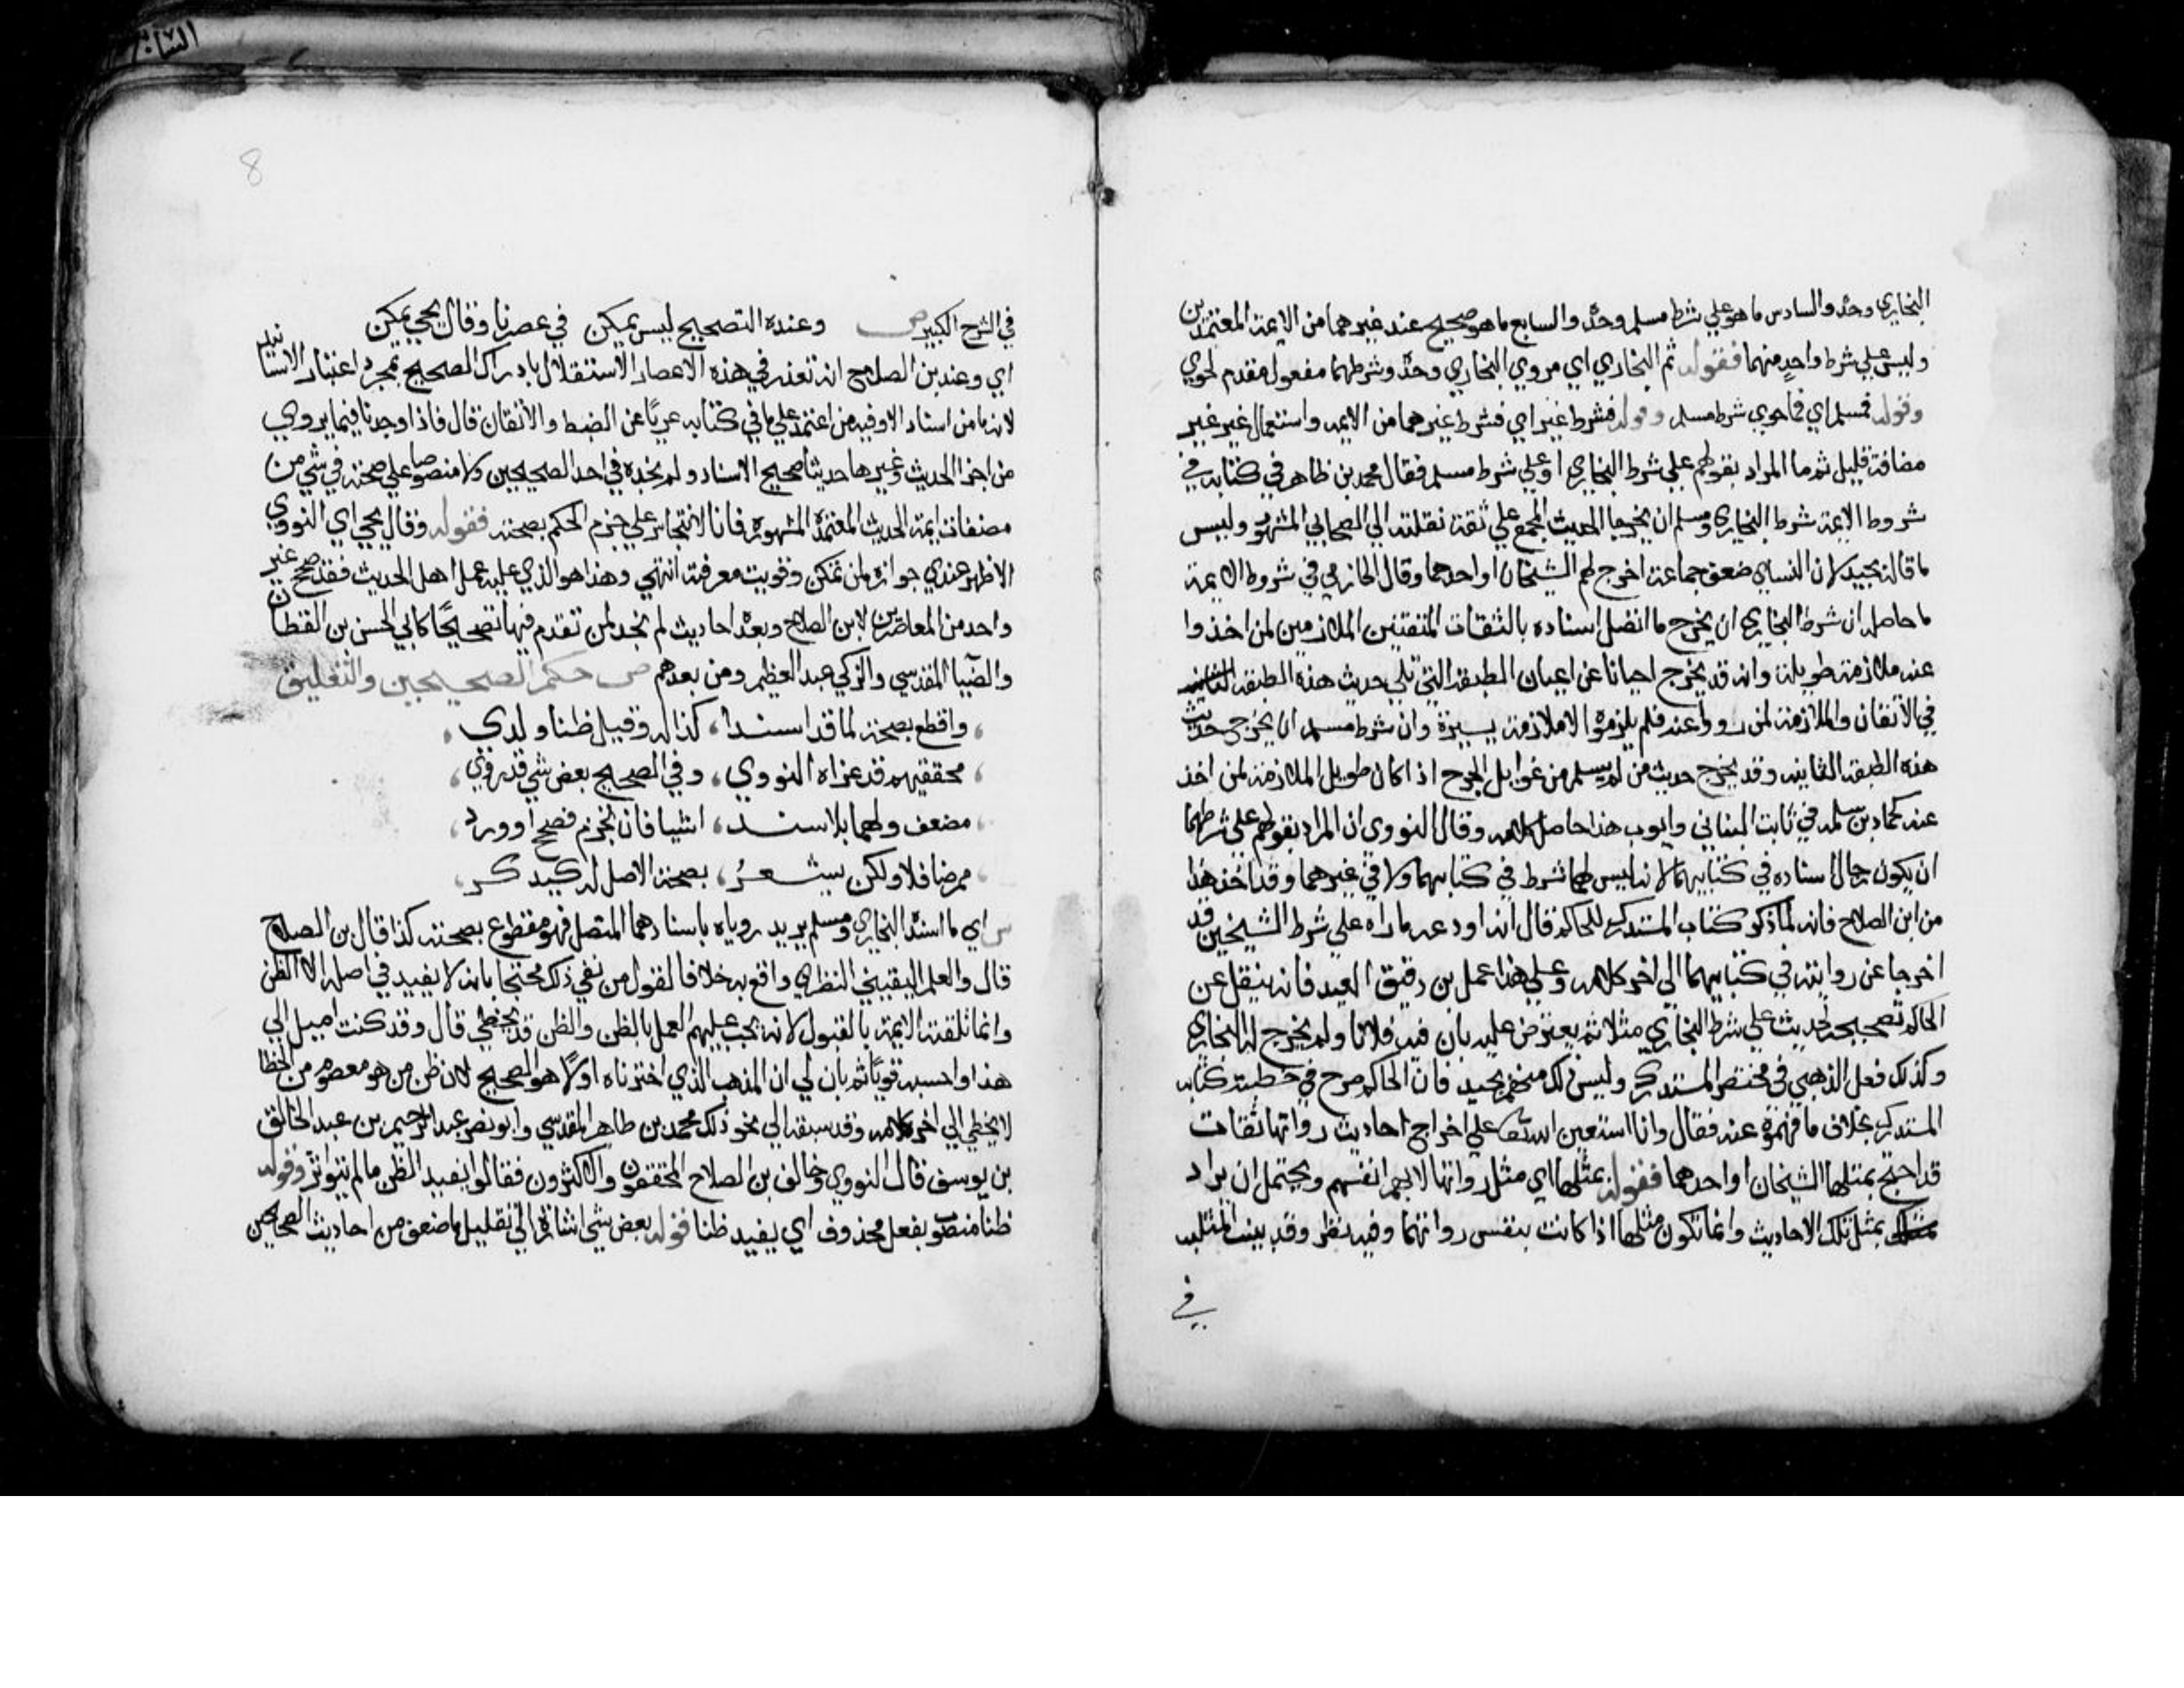 البخاري وحده والسادس ما هو علي شرط مسلم وحده والسابع ما هو صحيح عند غيرهما من الايمة المعتمدين
وليس علي شرط واحد منهما فقوله ثم البخاري اي مروي البخاري وحده وشرطهما مفعول مقدم لحوي
وقوله فمسلم اي فما حوي شرط مسلم وقوله فشرط غير اي فشرط غيرهما من الايمه واستعمال غير غير
مضافة قليل ثم ما المراد بقولهم علي شرط البخاري او علي شرط مسلم فقال محمد بن طاهر في كتابه في
شروط الايمة شرط البخاري ومسلم ان يخرجا الحديث المجمع علي ثقة نقلته الي الصحابي المشهور وليس
ما قاله بجيد لان النساي ضعف جماعة اخرج لهم الشيخان او احدهما وقال الحازمي في شروط الايمة
ما حاصله ان شرط البخاري ان يخرج ما اتصل اسناده بالثقات المتقنين الملازمين لمن اخذوا
عنه ملازمة طويلة وانه قد يخرج احيانا عن اعيان الطبقة التي تلي حديث هذه الطبقة
في الاتقان والملازمة لمن رووا عنه فلم يلزموه الا ملازمة يسيرة وان شرط مسلم ان يخرج حديث
هذه الطبقة الثانية وقد يخرج حديث من لم يسلم من غوايل الجرح اذا كان طويل الملازمة لمن اخذ
عنه كحماد بن سلمه في ثابت البناني وايوب هذا حاصل كلامه وقال النووي ان المراد بقولهم علي شرطهما
ان يكون رجال اسناده في كتابيهما لانه ليس لهما شرط في كتابيهما ولا في غيرهما وقد اخذ هذا
من ابن الصلاح فانه لما ذكر كتاب المستدرك للحاكم قال انه اودعه ما راه علي شرط الشيخين قد
اخرجا عن رواته في كتابيهما الي اخر كلامه وعلي هذا عمل بن دقيق العيد فانه ينقل عن
الحاكم تصحيحه لحديث علي شرط البخاري مثلا ثم يعترض عليه بان فيه فلانا ولم يخرج له البخاري
وكذلك فعل الذهبي في مختصر المستدرك وليس ذلك منهم بجيد فان الحاكم صرح في خطبة كتابه
المستدرك بخلاف ما فهموه عنه فقال وانا استعين الله علي اخراج احاديث رواتها ثقات
قد احتج بمثلها الشيخان او احدهما فقوله بمثلها اي مثل رواتها لا بهم انفسهم ويحتمل ان يراد
بمثل تلك الاحاديث وانما تكون مثلها اذا كانت بنفس رواتها وفيه نظر وقد بينت المثليه
في
8
في الشرح الكبير ص وعنده التصحيح ليس يمكن في عصرنا وقال يحي يمكن
اي وعند بن الصلاح انه تعذر في هذه الاعصار الاستقلال بادراك الصحيح بمجرد اعتبار الاسانيد
لانه ما من اسناد الا وفيه من اعتمد علي ما في كتابه عريا عن الضبط والاتقان قال فاذا وجدنا فيما يروي
من اجزا الحديث وغيرها حديثا صحيح الاسناد ولم نجده في احد الصحيحين ولا منصوصا علي صحته في شي من
مصنفات ايمة الحديث المعتمدة المشهورة فانا لا نتجاسر علي جزم الحكم بصحته فقوله وقال يحي اي النووي
الاظهر عندي جوازه لمن تمكن وقويت معرفته انتهي وهذا هو الذي عليه عمل اهل الحديث فقد صحح غير
واحد من المعاصرين لابن الصلاح وبعده احاديث لم نجد لمن تقدم فيها تصحيحا كابي الحسن بن القطان
والضيا المقدسي والزكي عبد العظيم ومن بعدهم ص حكم الصحيحين والتعليق
واقطع بصحة لما قد اسندا، كذا له وقيل ظنا ولدى
محققيهم قد عزاه النووي، وفي الصحيح بعض شي قد روي
مضعف ولهما بلا سند، اشيا فان يجزم فصحح او ورد
ممرضا فلا ولكن يشعر، بصحة الاصل له كيذكر
س اي ما اسنده البخاري ومسلم يريد روياه باسنادهما المتصل فهو مقطوع بصحته كذا قال بن الصلاح
قال والعلم اليقيني النظري واقع به خلافا لقول من نفي ذلك محتجا بانه لا يفيد في اصله الا الظن
وانما تلقته الايمة بالقبول لانه يجب عليهم العمل بالظن والظن قد يخطي قال وقد كنت اميل الي
هذا واحسبه قويا ثم بان لي ان المذهب الذي اخترناه اولا هو الصحيح لان ظن من هو معصوم من الخطا
لا يخطي الي اخر كلامه وقد سبقه الي نحو ذلك محمد بن طاهر المقدسي وابو نصر عبد الرحيم بن عبد الخالق
بن يوسف قال النووي وخالف بن الصلاح المحققون والاكثرون فقالوا يفيد الظن ما لم يتواتر وقوله
ظنا منصوب بفعل محذوف اي يفيد ظنا قوله بعض شي اشارة الي تقليل ما ضعف من احاديث الصحيحين